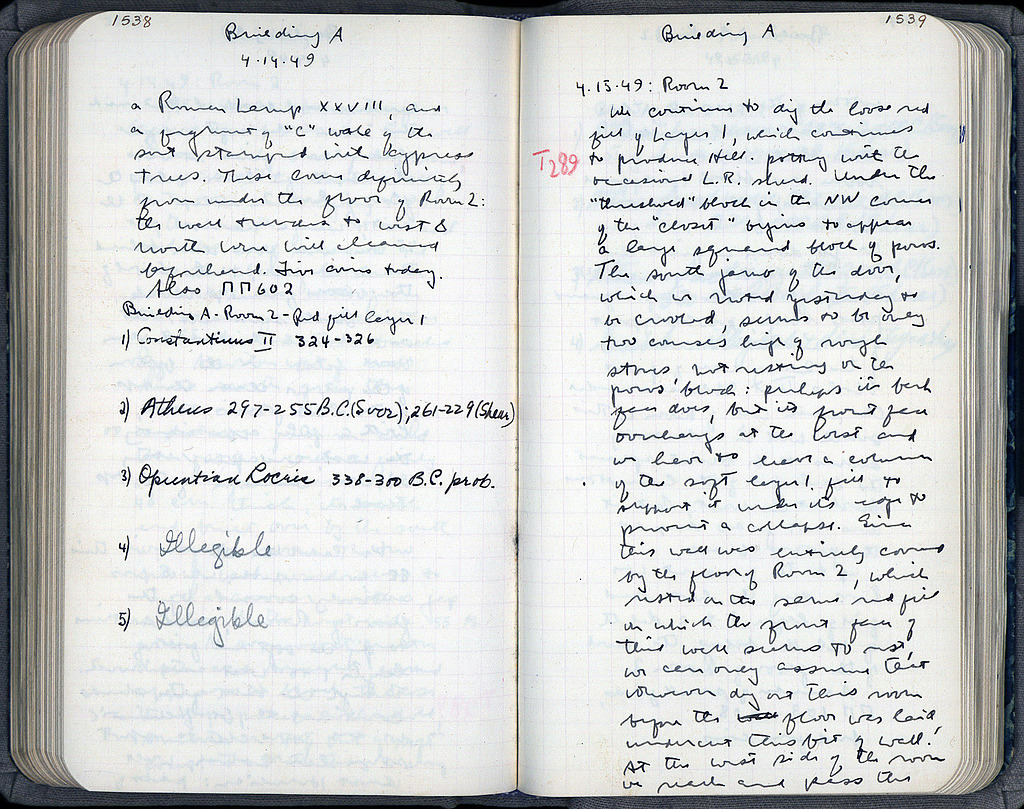 1538
Building A
4.14.49
a Roman Lamp XXVIII, and
a fragment of "C" ware of the
sort stamped with cypress
trees. These come definitely
from under the floor of Room 2:
the wall trenches to west &
north were well cleaned
beforehand. Five coins today.
Also ΠΠ602
Building A - Room 2 - Red fill layer 1
1) Constantinus II 324-326
2) Athens 297-255 B.C. (Svor.); 261-229 (Shear)
3) Opuntian Locris 338-300 B.C. prob.
4) Illegible
5) Illegible
1539
Building A
4.15.49: Room 2
We continue to dig the loose red
fill of Layer 1, which continues
T289
to produce Hell. pottery with the
occasional L.R. sherd. Under the
"threshold" block in the NW corner
of the "closet" begins to appear
a large squared block of poros.
The south jamb of the door,
which we noted yesterday to
be crooked, seems to be only
two courses high of rough
stones not resting on the
poros block: perhaps its back
face does, but its front face
overhangs at the west and
we have to leave a column
of the soft layer 1, fill to
support it under its edge to
prevent a collapse. Since
this wall was entirely covered
by the floor of Room 2, which
rested on the same red fill
on which the front face of
this wall seems to rest,
we can only assume that
whoever dug out this room
before the floor was laid,
undercut this bit of wall.
At the west side of the room
we reach and pass the